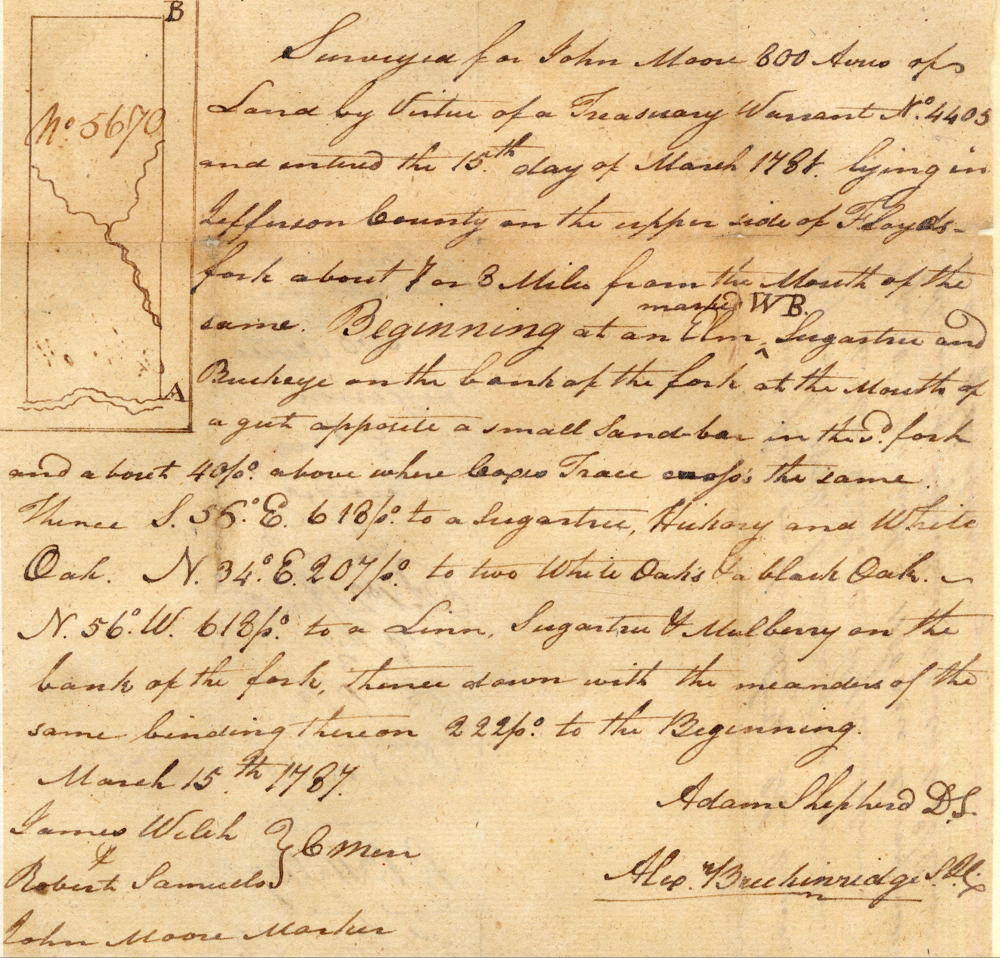 B
No 5670
A
Surveyed for John Moore 800 Acres of
Land by Virtue of a Treasuary Warrant No. 4405
and entered the 15th day of March 178 lying in
Jefferson County on the upper side of Floyds-
fork about 7 or 8 Miles from the Mouth of the
marked WB.
same. Beginning at an Elm, Sugartree and
Buckeye on the bank of the fork ^ at the Mouth of
a gut opposite a small Sand-bar in the sd. fork
and about 40 po. above where Trace the same.
Thence S. 56° E. 618 po. to a Sugartree, Hickory and White
Oak. N. 34° E. 207 po. to two White Oaks & a black Oak.
N. 56° W. 618 po. to a Linn, Sugartree & Mulberry on the
bank of the fork, thence down with the meanders of the
same binding thereon 222 po. to the Beginning.
March 15th 1787.
Adam Shepherd D.S.
James Welch
&
Robert Samuels
} C Men
Alexr. Breckinridge
John Moore Marker